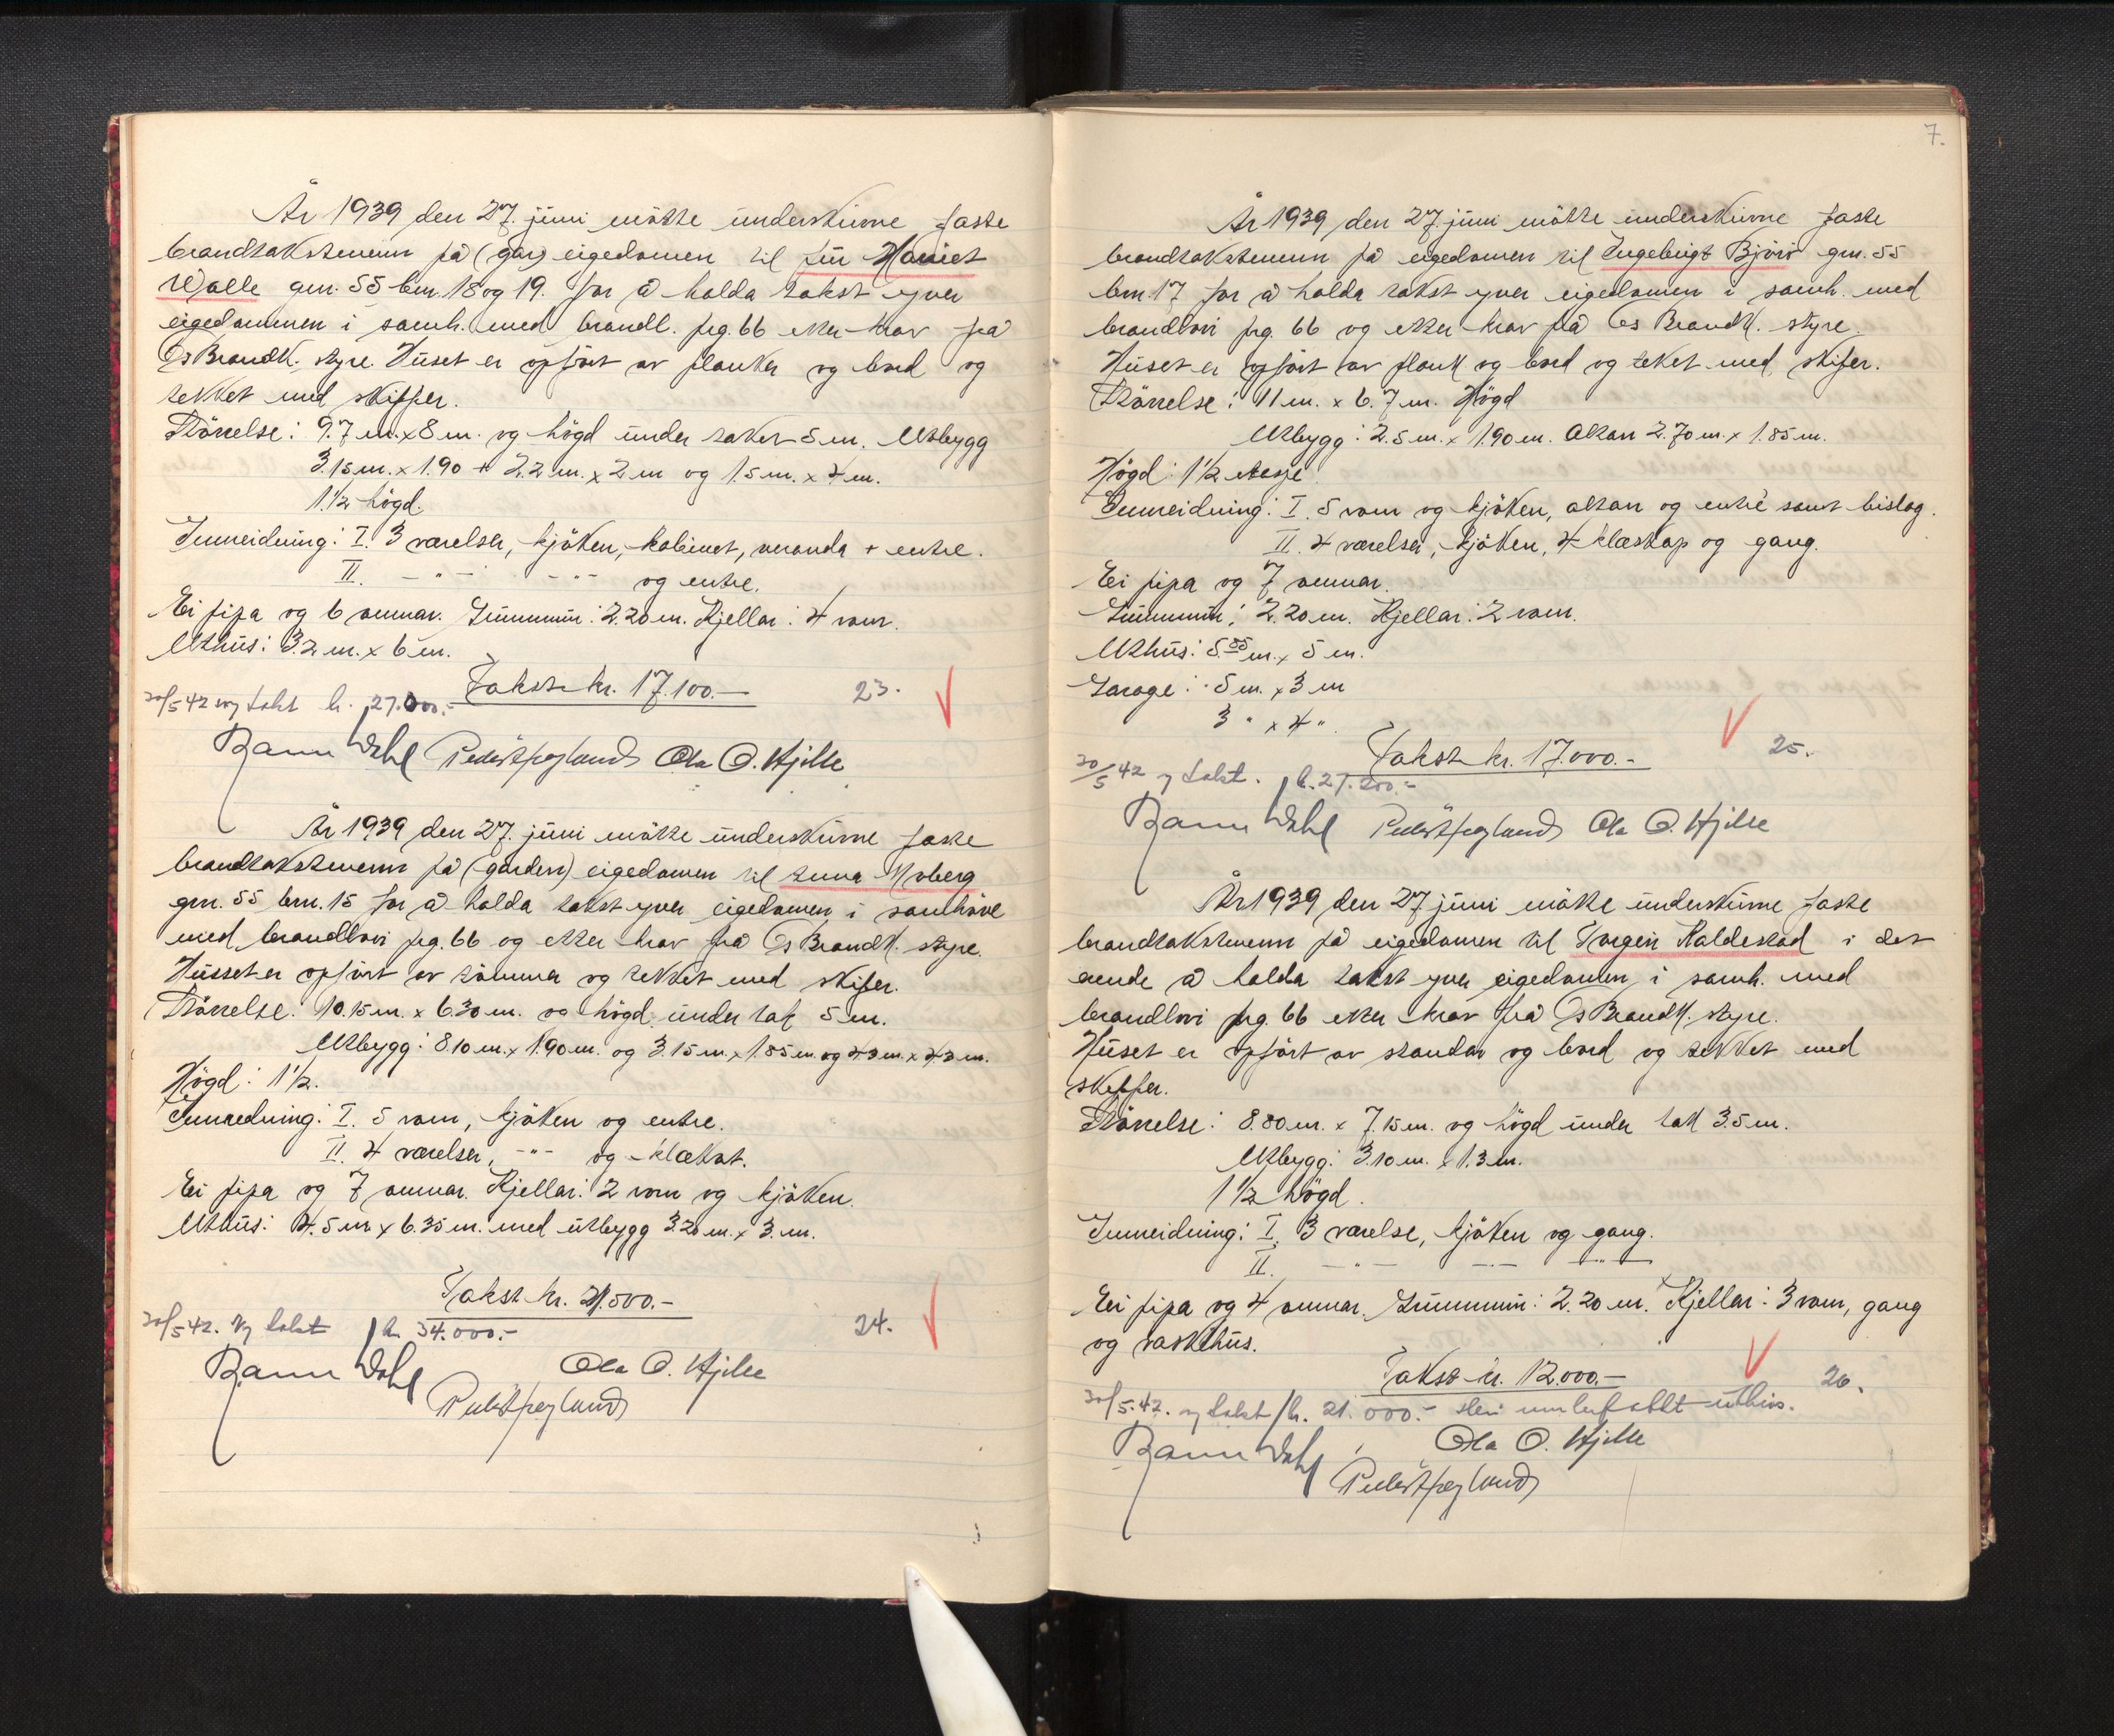 År 1939 den 27. juni møtte underskirvne faste
brandtakstmenn på (gar) eigedomen til fru Hariet
Walle gnr. 55 bnr. 18 og 19. for å halda takst yver
eigedommen i samh. med brandl. prg. 66 etter krav frå
Os Brandk. styre. Huset er opført av planker og bord og
tekket med skiffer.
Størrelse: 9.7 m. x 8 m. og høgd under taket 5 m. Utbygg
3.15 m. x 1.90 + 2.2 m. x 2 m og 1.5 m. x 4 m.
1 1/2 høgd.
Innreidning: I. 3 værelser, kjøken, kabinet, veranda + entre.
II. - " - - " - og entre.
Ei pipa og 6 omnar. Grunnmur: 2.20 m. Kjellar: 4 rom.
Uthus: 3.2 m. x 6 m.
Takst kr. 17.100.-
23.
30/5 42 ny takst kr. 27.000.-
Dahl Ola O. Hjelle
År 1939 den 27. juni møtte underskirvne faste
brandtakstmenn på (garden) eigedomen til Anna Moberg
gnr. 55 bnr. 15 for å halda takst yver eigedomen i samhøve
med brandlovi prg. 66 og etter krav frå Os Brandk. styre.
Husset er opført av tømmer og tekket med skifer.
Størrelse: 10.15 m. x 6.30 m. og høgd under tak 5 m.
Utbygg: 8.10 m. x 1.90 m. og 3.15 m. x 1.85 m. og
Høgd: 1 1/2.
Innredning: I. 5 rom, kjøken og entre.
II. 4 værelser, - " - og klækot.
Ei pipa og 7 omnar. Kjellar: 2 rom og kjøken.
Uthus: 4.5 m x 6.35 m. med utbygg 3.20 m. x 3. m.
Takst kr. 21.500.-
24.
30/5 42. Ny takst kr. 34.000.-
Dahl Ola O. Hjelle
7.
År 1939 den 27. juni møtte underskirvne faste
brandtakstmenn på eigedomen til Ingebrigt Bjørø gnr. 55
bnr. 17 for å halda takst yver eigedomen i samh. med
brandlovi prg. 66 og etter krav frå Os Brandk. styre.
Huset er opført av plank og bord og teket med skifer.
Størrelse: 11 m. x 6.7 m. Høgd
Utbygg: 2.5 m. x 1.90 m. Altan 2.70 m. x 1.85 m.
Høgd: 1 1/2 etasje
Innreidning: I. 5 rom og kjøken, altan og entré samt bislag.
II. 4 værelser, kjøken, 4 klæskap og gang.
Ei pipa og 7 omnar.
Grunnmur: 2.20 m. Kjellar: 2 rom.
Uthus: 5.85 m. x 5 m.
Garage: 5 m. x 3 m
3 " x 4 ".
Takst kr. 17.000.-
25.
30/5 42 ny takst. kr. 27.200.-
Dahl Ola O. Hjelle
År 1939 den 27. juni møtte underskirvne faste
brandtakstmenn på eigedomen til Torgeir Haldestad i det
ærende å halda takst yver eigedomen i samh. med
brandlovi prg. 66 etter krav frå Os Brandk. styre.
Huset er opført av standar og bord og tekket med
skiffer.
Størrelse: 8.80 m. x 7.15 m. og høgd under tak 3.5 m.
Utbygg: 3.10 m. x 1.3 m.
1 1/2 høgd.
Innreidning: I. 3 værelse, kjøken og gang.
II. - " - - " - - " -
Ei pipa og 4 omnar. Grunnmur: 2.20 m. Kjellar: 3 rom, gang
og vaskehus.
Takst kr. 12.000.-
26.
30/5.42. ny takst kr. 21.000.- Heri innbefattet uthus.
Dahl Ola O. Hjelle